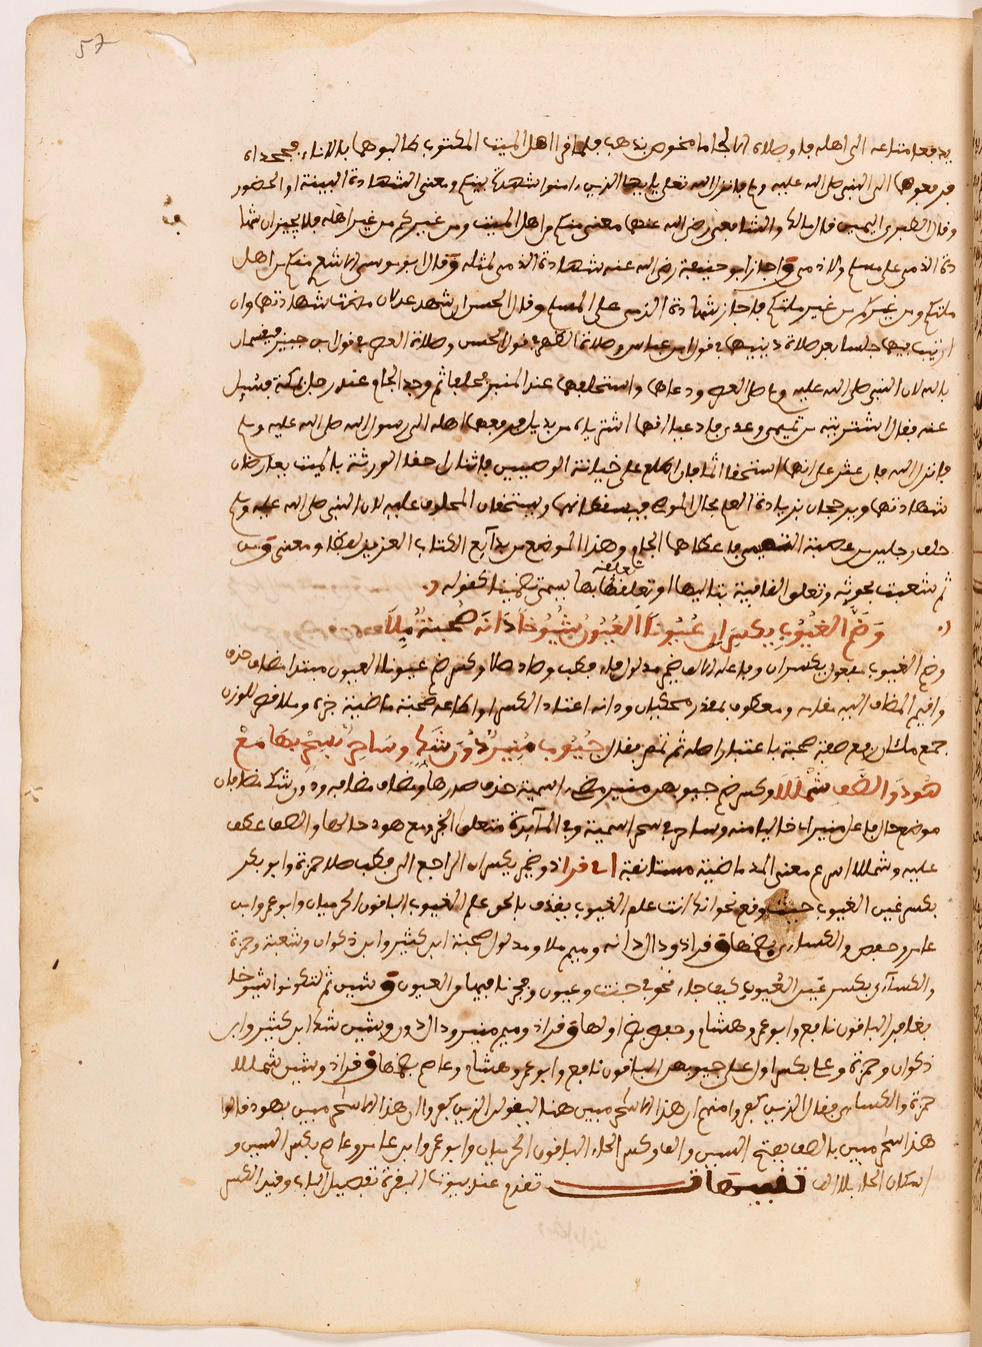 57
يدفعا متاعه الى اهله فما وصلاه الا جاما مخوص بذهب فلما قرا اهل الميت المكتوب طالبوهما بالاناء فجحداه
فرفعوهما الى النبي صلى الله عليه وسلم فانزل الله تعلى يا ايها الذين ءامنوا شهدة بينكم ومعنى الشهادة البينة او الحضور
وقال الطبري اليمين قال مالك والشافعي رضى الله عنهما معنى منكم من اهل الميت ومن غيركم من غير اهله فلا يجيزان شها
دة الذمي على مسلم ولا ذمي واجاز ابو حنيفة رضى الله عنه شهادة الذمي لمثله وقال ابو موسى الاشعري منكم من اهل
ملتكم ومن غيركم من غير ملتكم فاجاز شهادة الذمي على المسلم وقال الحسن ان شهد عدلان مضت شهادتهما وان
ارتيب فيهما حلفا بعد صلاة دينهما في قول ابن عباس وصلاة الظهر في قول الحسن وصلاة العصر في قول ابن جبير فيقسمان
بالله لان النبي صلى الله عليه وسلم صلى العصر ودعاهما واستحلفهما عند المنبر فحلفا ثم وجد الجام عند رجل بمكة فسيل
عنه فقال اشتريته من تميم وعدي فادعيا انهما اشترياه من بديل فرفعهما اهله الى رسول الله صلى الله عليه وسلم
فانزل الله فان عثر على انهما استحقا اثما فان اطلع على خيانة الوصيين فاثنان احقا الورثة بالميت يعارضان
شهادتهما ويرجحان بزيادة العلم بحال الموصي فيسقطانهما ويستحقان المحلوف عليه لان النبي صلى الله عليه وسلم
حلف رجلين من عصبة السهمي فاعطاهما الجام وهذا الموضع من بدايع الكتاب العزيز لفظا ومعنى وس
ثم شعبت بحوثه وتعلق القافية بتاليها او تعلقها بها يسمى تضمينا كقوله
وضم الغيوب يكسران عيونا العيون شيوخا دانه صحبة ملا
وضم الغيوب مفعول يكسران وفاعله الالف ضمير مدلول فاء فطب وصاد صلا وكسر ضم عيونا العيون مبتدا مضاف حذف
واقيم المضاف اليه مقامه ومعطوف بمقدر محكيان ودانه اعتاد الكسر او اطاعه صحبة ماضية خبره وملا قصر للوزن
جمع ملئان رفع صفة صحبة باعتبار اصله ثم تمم فقال جيوب منير دون شك وساحر بسحر بها مع
هود والصف شمللا وكسر ضم جيوبهن منير
موضع حال فاعل منير اي خاليا منه وساحر في سحر اسمية وبها المآيدة متعلق الخبر ومع هود حالها والصف عطف
عليه وشمللا اسرع معنى المد ماضية مستانفة اي قرا ذو ضمير يكسران الراجع الى فطب صلا حمزة وابو بكر
بكسر غين الغيوب حيث وقع نحو انك انت علم الغيوب يقذف بالحق علم الغيوب الباقون الحرميان وابو عمرو وابن
عامر وحفص والكساءي بضمها وقرا ذو دال دانه وميم ملا ومدلول صحبة ابن كثير وابن ذكوان وشعبة وحمزة
والكسآءي بكسر عين العيون كيف جاء نحو في جنت وعيون وفجرنا فيها من العيون وشين ثم لتكونوا شيوخا
بغافر الباقون نافع وابو عمرو وهشام وحفص بضم اولها وقرا ذو ميم منير ودال دون وشين شك ابن كثير وابن
ذكوان وحمزة وعلي بكسر اول على جيوبهن الباقون نافع وابو عمرو وهشام وعاصم بضمها وقرا ذو شين شمللا
حمزة والكساءي فقال الذين كفروا منهم ان هذا الا سحر مبين هنا ليقولن الذين كفروا ان هذا الا سحر مبين بهود قالوا
هذا سحر مبين بالصف بفتح السين والف وكسر الحاء الباقون الحرميان وابو عمرو وابن عامر وعاصم بكسر السين و
اسكان الحاء بلا الف تنبيهات تقدم عند بيوت البقرة تفصيل الباب وقيد الكسر